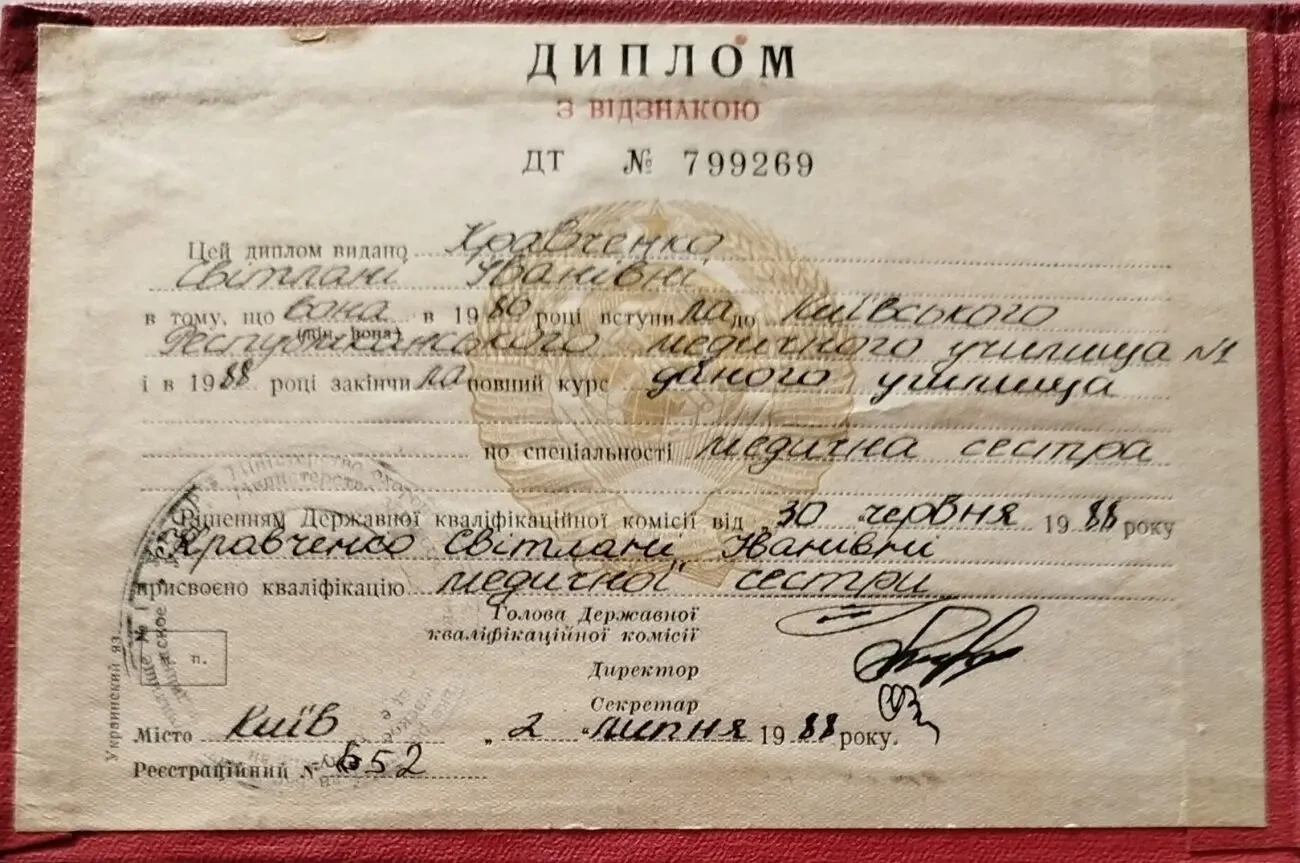 ДИПЛОМ
З ВІДЗНАКОЮ
ДТ № 799269
Цей диплом видано Кравченко
Світлані Іванівні
в тому, що вона в 1980 році вступила до Київського
(він, вона)
Республіканського медичного училища №1
і в 1988 році закінчила повний курс даного училища
по спеціальності медична сестра
Рішенням Державної кваліфікаційної комісії від „30 червня 1988 року
Кравченко Світлані Іванівні
присвоєно кваліфікацію медичної сестри
Голова Державної
кваліфікаційної комісії
Директор
Секретар
Украинский яз.
п.
Місто Київ „2 “ липня 1988 року.
Реєстраційний № 652